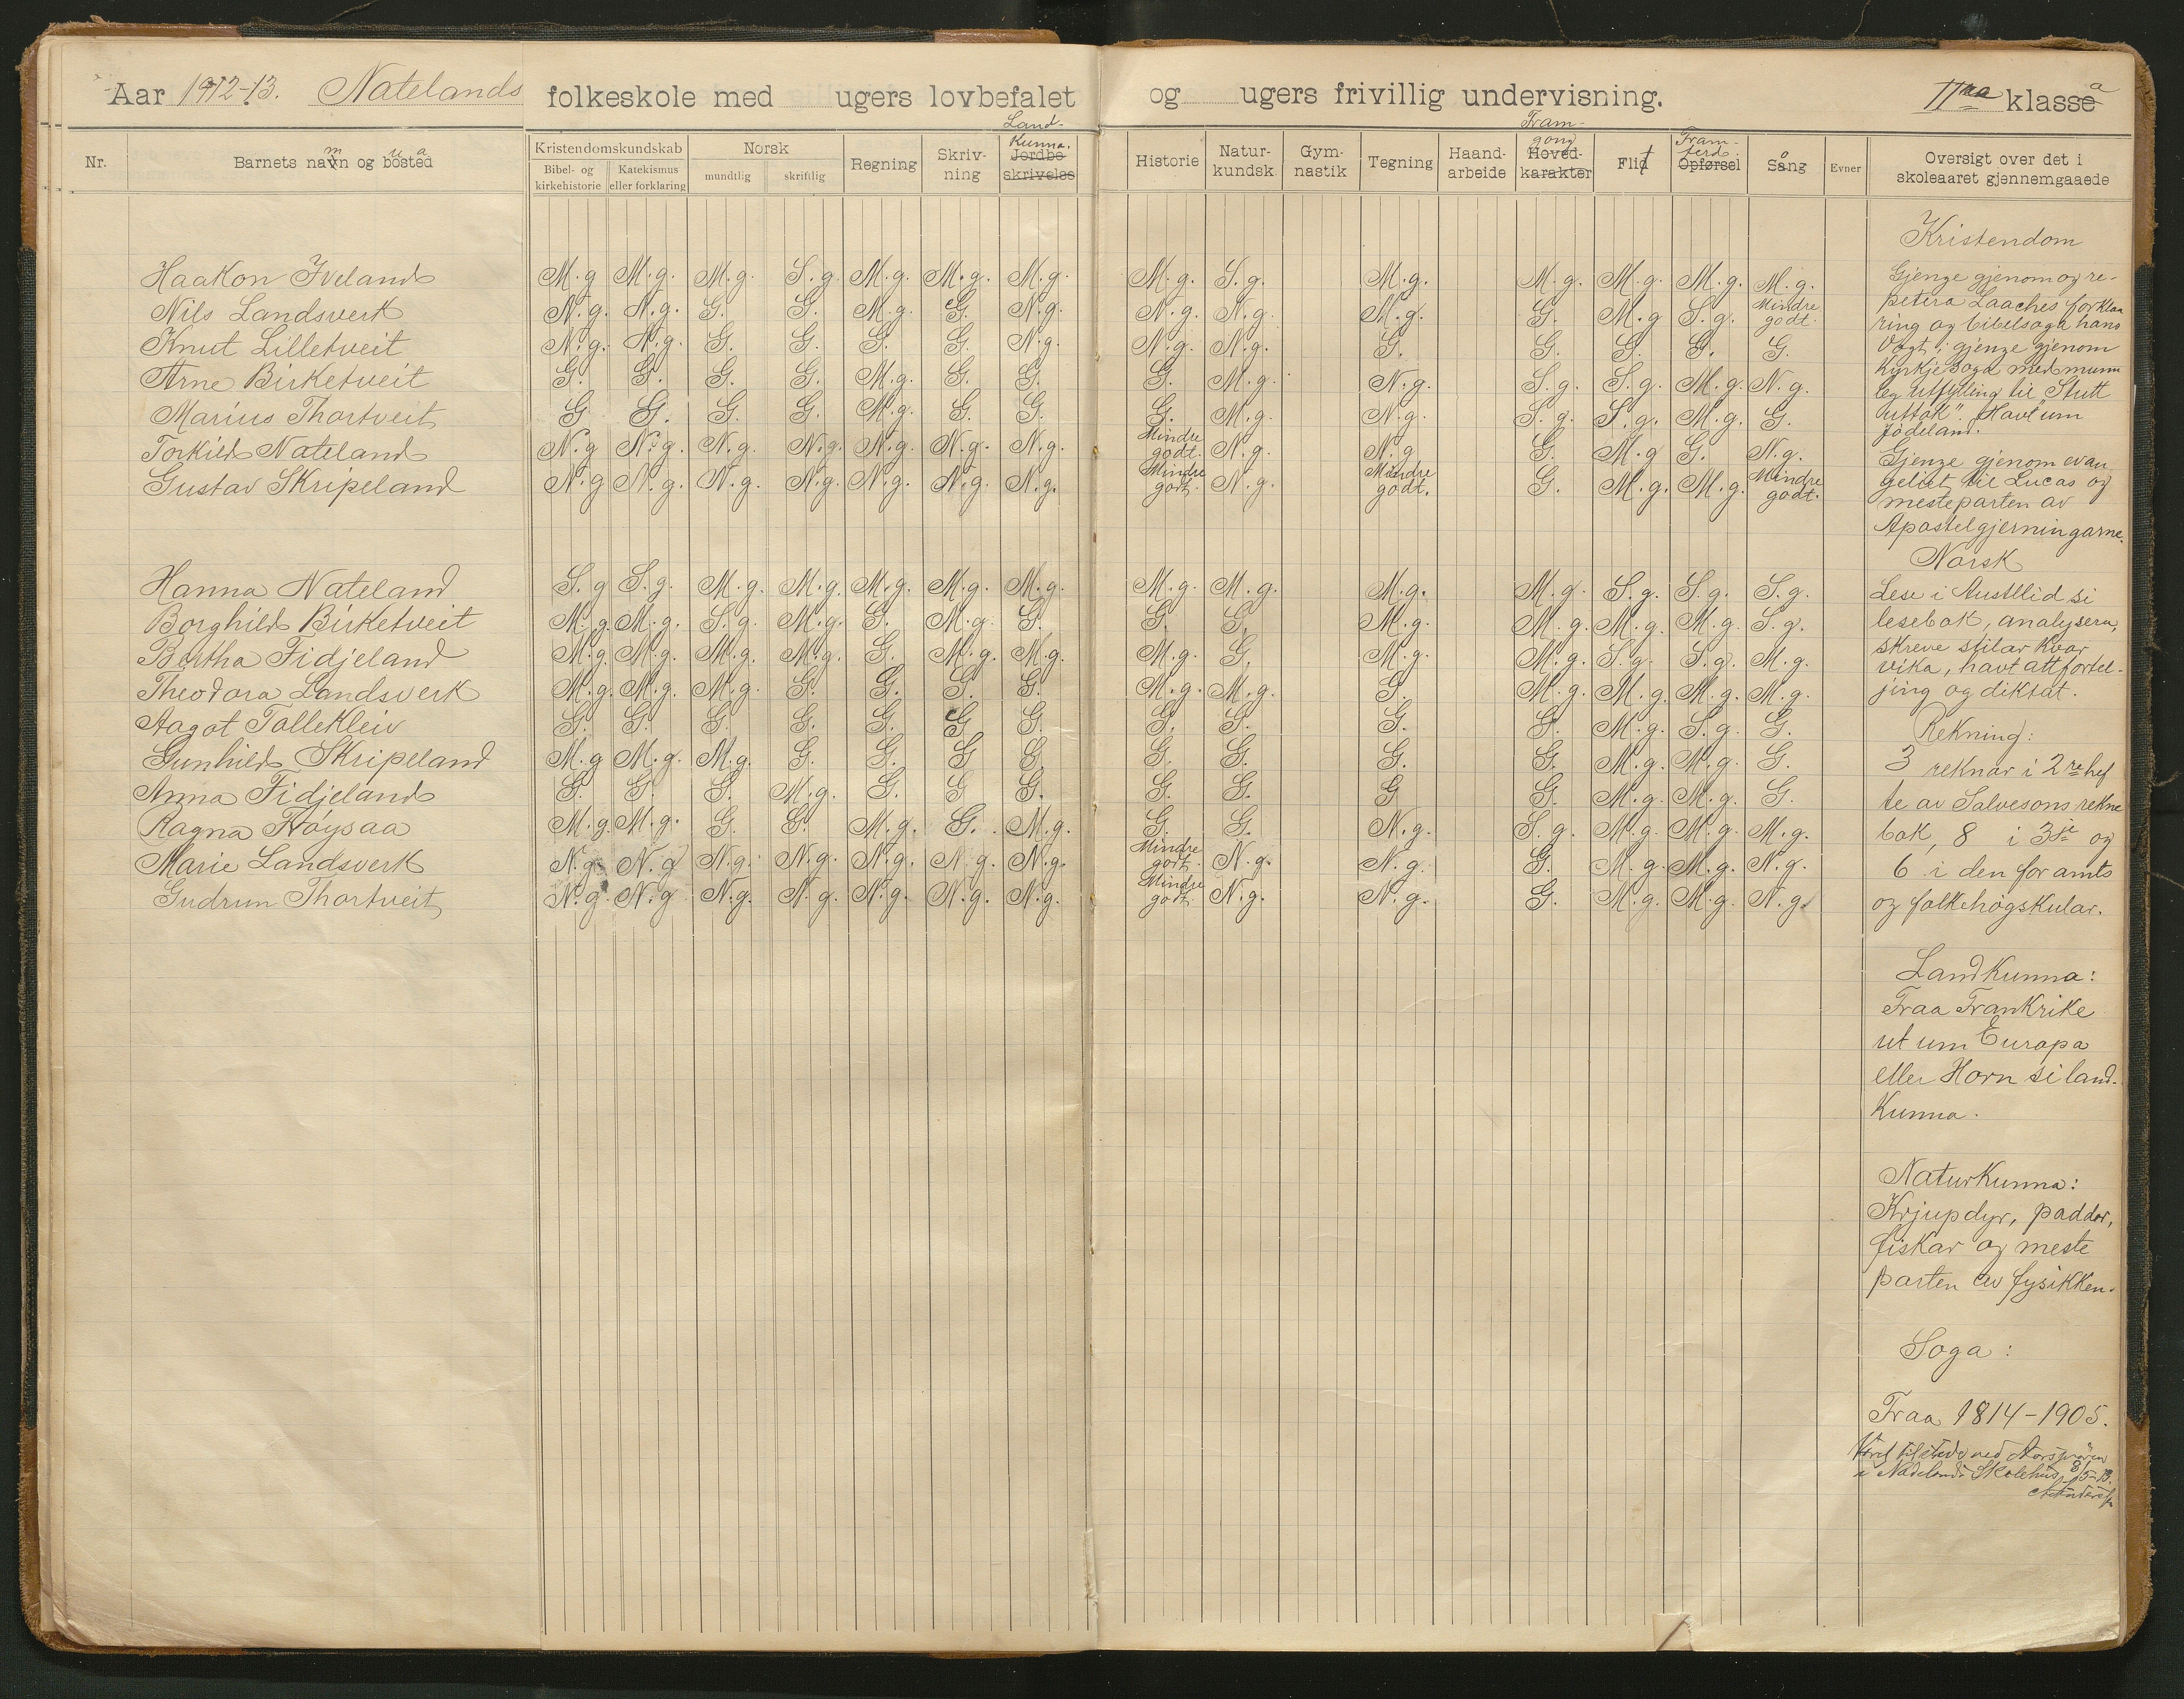 Aar 1912-13. Natelands folkeskole med ugers lovbefalet og ugers frivillig undervisning. IIaa klassea
Nr. Barnets namn og bustad Kristendomskundskab Norsk Regning Skriv-ning Land-kunna. Jordbe-skrivelse Historie Natur-kundsk. Gym-nastik Tegning Haand-arbeide Fram-gong Hoved-karakter Flit Fram-ferd Opførsel Sång Evner Oversigt over det i skoleaaret gjennemgaaede
Bibel- og kirkehistorie Katekismus eller forklaring mundtlig skriftlig
Haakon Iveland M.g M.g. M.g. S.g. M.g. M.g. M.g. M.g. S.g. M.g. M.g. M.g. M.g. M.g.
Nils Landsverk N.g. N.g. G. G. M.g. G. N.g. N.g. N.g. M.g. G. M.g S.g. Mindre godt.
Knut Lilletveit N.g. N.g. G. G. G. G. N.g. N.g. N.g. G. G. G. G. G.
Arne Birketveit G. G. G. G. M.g. G. G. G. M.g. N.g. S.g. S.g. M.g. N.g.
Marius Thortveit G G. G. G. M.g. G. G. G. M.g. N.g. S.g. S.g. M.g. G.
Torkild Nateland N.g N.g. N.g. N.g. N.g. N.g. N.g. Mindre godt. N.g. N.g G. M.g G. N.g.
Gustav Skripeland N.g N.g. N.g. N.g. N.g. N.g. N.g. Mindre godt. N.g. Mindre godt. G. M.g. M.g. Mindre godt.
Hanna Nateland S.g S.g. M.g. M.g. M.g. M.g. M.g. M.g. M.g. M.g. M.g. S.g. S.g. S.g.
Borghild Birketveit M.g. M.g. S.g. M.g. G. M.g. G. G. G. M.g. M.g. M.g. M.g. S.g.
Bertha Fidjeland M.g. M.g. M.g. M.g. G. M.g. M.g. M.g. G. M.g. M.g. S.g. S.g. M.g.
Theodora Landsverk M.g. M.g. M.g. G. G. G. G. M.g. M.g. G. M.g. M.g. M.g. M.g.
Aagot Tallekleiv G. G. G. G. G. G G. G. G. G. G. M.g. S.g. G.
Gunhild Skripeland M.g M.g. M.g. G. G. G G. G. G. G. G. M.g. M.g. G.
Anna Fidjeland G. G. G. M.g. G. G G. G. G. G G. M.g. M.g. G.
Ragna Frøysaa M.g. M.g. G. G. M.g. G. M.g. G. G. N.g. S.g. M.g. M.g. M.g.
Marie Landsverk N.g. N.g N.g. N.g. N.g. N.g. N.g. Mindre godt. N.g. N.g. G. M.g. M.g. N.g.
Gudrun Thortveit N.g. N.g N.g. N.g. N.g. N.g. N.g. Mindre godt. N.g. N.g. G. M.g. M.g. N.g.
Kristendom
Gjenge gjenom og re-
petera Laaches forkla
ring og bibelsoga hans
Vogt; gjenge gjenom
kyrkjesoga med munn
leg utfylling til "Stutt
uttak". Havt um
Jødeland.
Gjenge gjenom evan
geliet til Lucas og
mesteparten av
Apostelgjerningarne.
Norsk
Lese i Austlid si
lesebok, analysera,
skreve stilar kvar
vika, havt attfortel-
jing og diktat.
Rekning:
3 reknar i 2re hef
te av Salvesons rekne
bok, 8 i 3je og
6 i den for amts
og folkehøgskular.
Landkunna:
Fraa Frankrike
ut um Europa
etter Horn si land-
kunna.
Naturkunna:
Krjupdyr, paddor,
fiskar og meste
parten av fysikken.
Soga:
Fraa 1814-1905.
tilstede ved Aarsprøven
i Nadelands Skolehus 8/5-13.